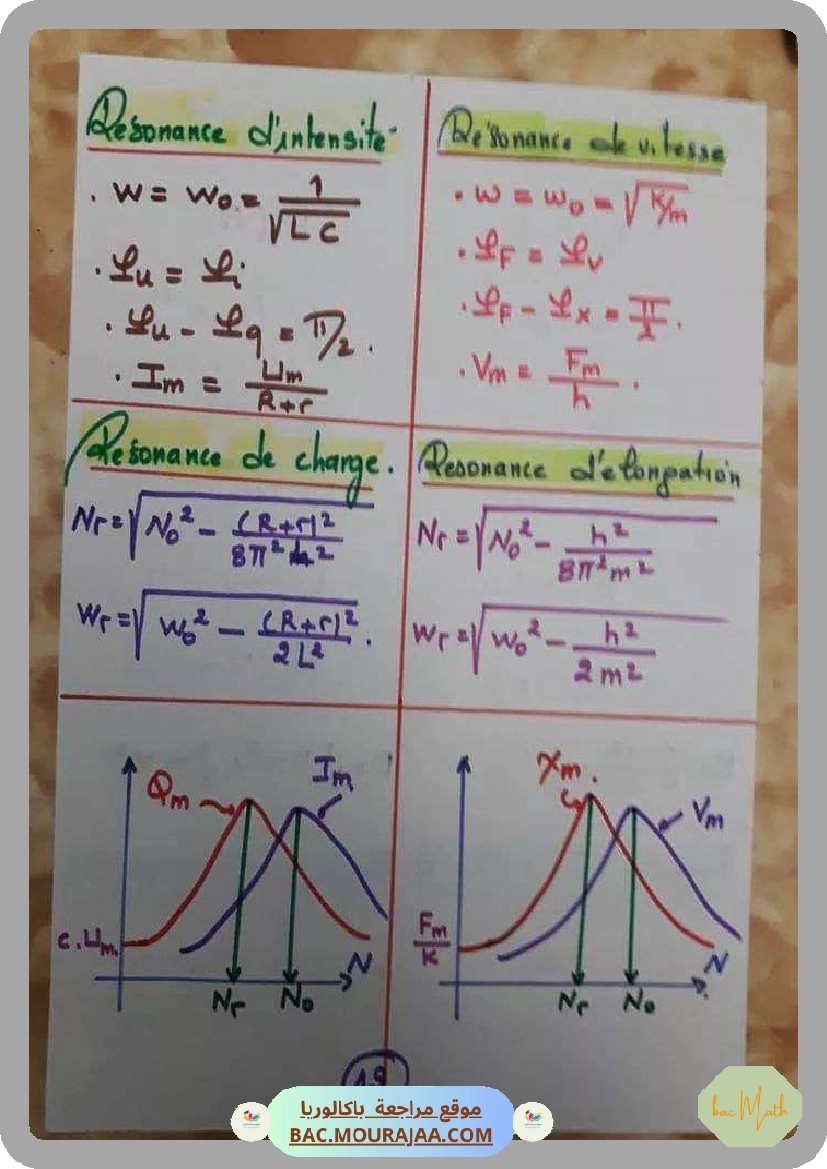 Résonance d'intensité
. W = W₀ = 1/√LC
. φu = φi
. φu - φq = π/2 .
. Im = Um/R+r
Résonance de vitesse
. w = w₀ = √K/m
. φF = φv
. φF - φx = π/2 .
. Vm = Fm/h .
Résonance de charge .
Nr = √N₀² - (R+r)²/8π²L²
Wr = √W₀² - (R+r)²/2L² .
Resonance d'élongation
Nr = √N₀² - h²/8π²m²
Wr = √W₀² - h²/2m²
Qm
Im
c.Um
N
Nr
N₀
Xm .
Vm
Fm/K
N
Nr
N₀
موقع مراجعة باكالوريا
BAC.MOURAJAA.COM
bac Math